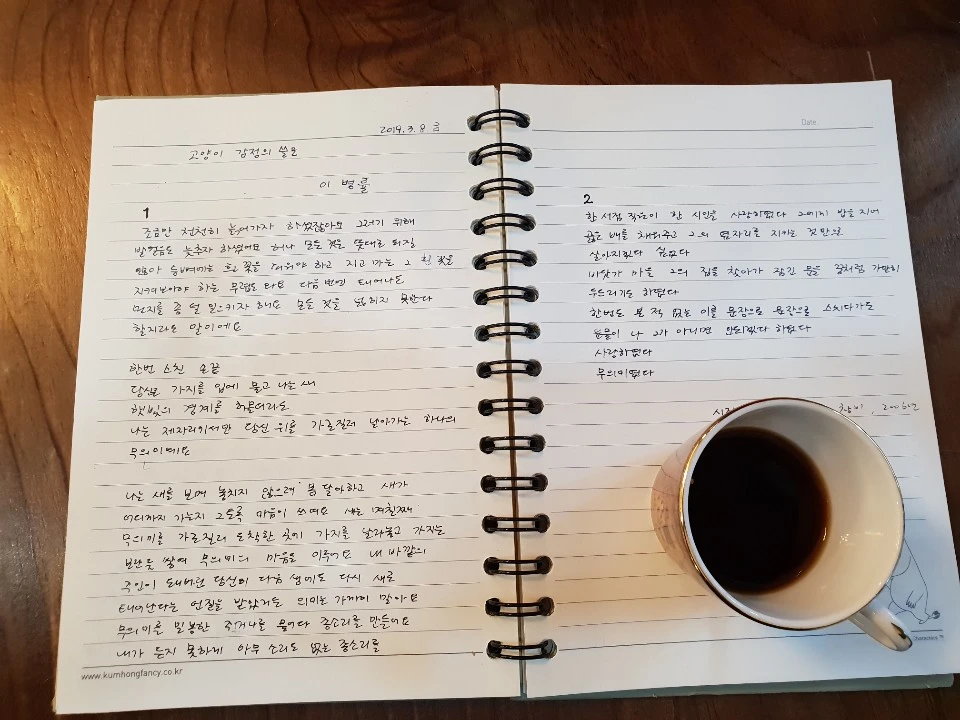 2019. 3. 8 금
고양이 감정의 쓸모
이 병률
1
조금만 천천히 늙어가자 하였잖아요 그러기 위해
발걸음도 늦추자 하였어요 허나 모든 것은 뜻대로 되질
않아 등뼈에는 흰 꽃을 피워야 하고 지고 마는 그 흰 꽃을
지켜보아야 하는 무렵도 와요 다음번엔 태어나도
먼지를 좀 덜 일으키자 해요 모든 것을 넓히지 못한다
할지라도 말이에요
한번 스친 손끝
당신은 가지를 입에 물고 나는 새
햇빛의 경계를 허물더라도
나는 제자리에서만 당신 위를 가로질러 날아가는 하나의
무의미예요
나는 새를 보며 놓치지 않으려 몸 달아하고 새가
어디까지 가는지 그토록 마음이 쓰여요 새는 며칠째
무의미를 가로질러 도착한 곳에 가지를 날라놓고 가지는
보란듯 쌓여 무의미의 마을을 이루어요 내 바깥의
주인이 돼버린 당신이 다음 생에도 다시 새로
태어난다는 언질을 받았거든 의미는 가까이 말아요
무의미를 밀봉한 주머니를 물어다 종소리를 만들어요
내가 듣지 못하게 아무 소리도 없는 종소리를
www.kumhongfancy.co.kr
Date
2
한 서점 직원이 한 시인을 사랑하였다 그에게 밥을 지어
곯은 배를 채워주고 그의 옆자리를 지키는 것만으로
살아지겠다 싶었다
바닷가 마을 그의 집을 찾아가 잠긴 문을 꿈처럼 가만히
두드리기도 하였다
한번도 본 적 없는 이를 문장으로 문장으로 스치다가도
눈물이 나 그가 아니면 안되겠다 하였다
사랑하였다
무의미였다
창비, 2006년